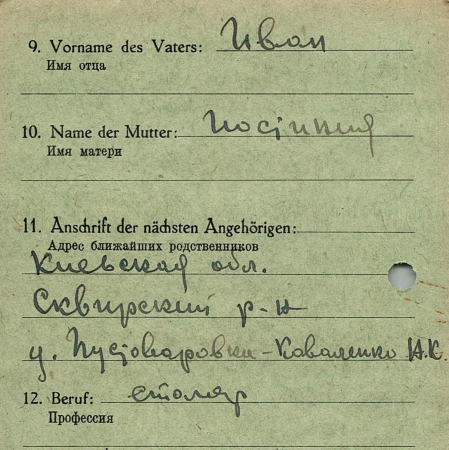 9. Vorname des Vaters: Иван
Имя отца
10. Name der Mutter:
Имя матери
11. Anschrift der nächsten Angehörigen:
Адрес ближайших родственников
Киевская обл.
Сквирский р-н
Коваленко
12. Beruf: столяр
Профессия